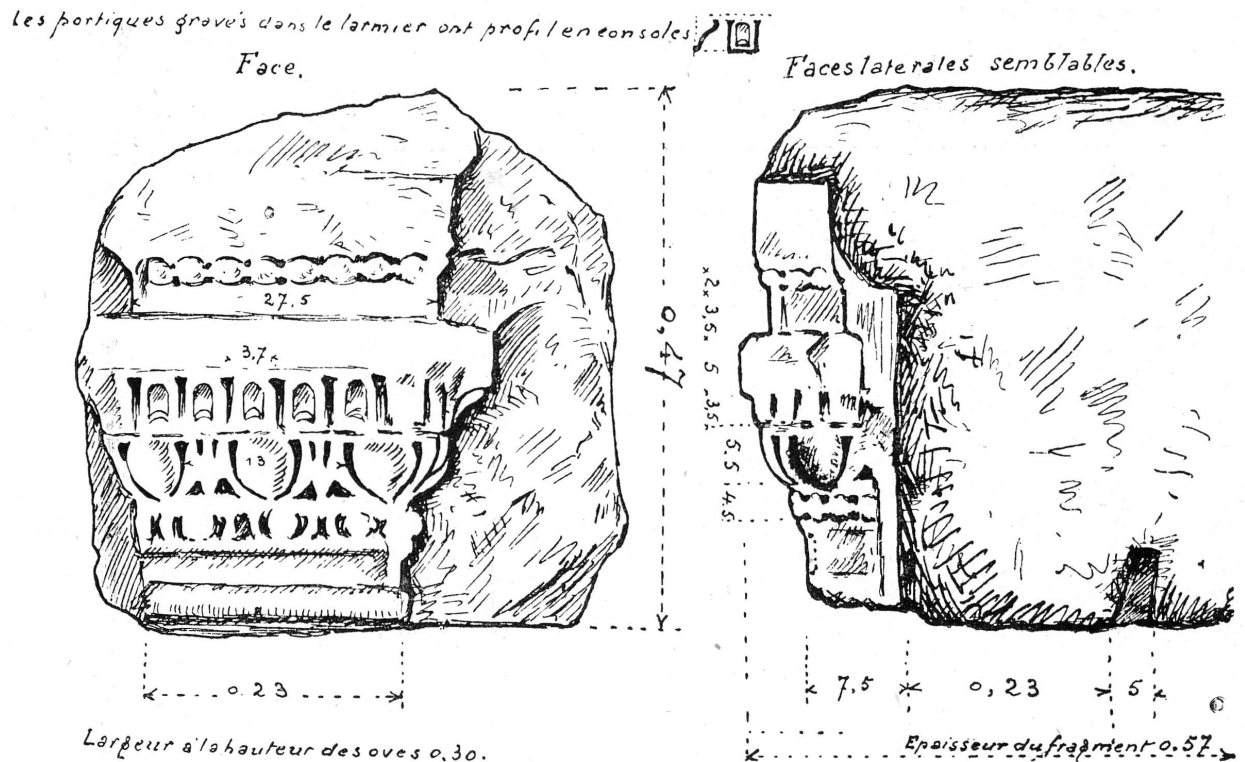 les portiques gravés dans le larmier ont profil en consoles
Face.
Faces laterales semblables.
27,5
3,7
13
0,47
2 3,5 5 3,5
5.5 4.5
0.23
7,5 0,23 5
Largeur à la hauteur des oves 0,30.
Epaisseur du fragment 0.57